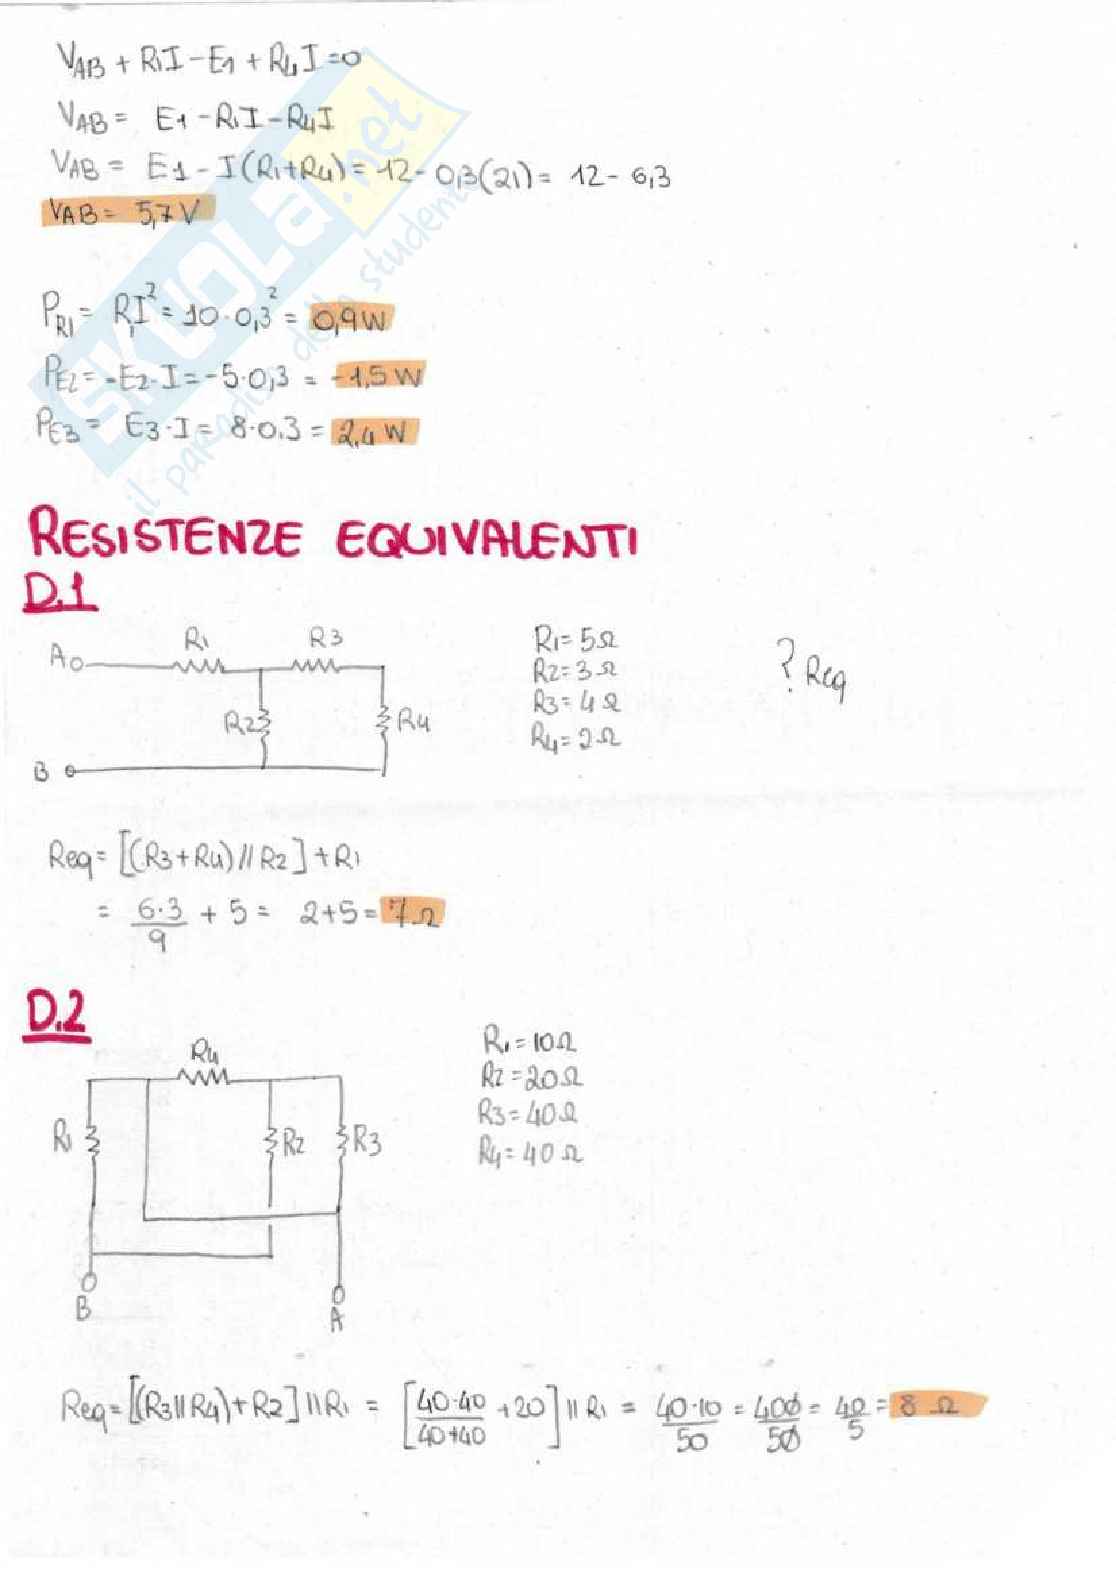 VAB + R1I - E1 + R4I = 0
VAB = E1 - R1I - R4I
VAB = E1 - I(R1+R4) = 12 - 0,3(21) = 12 - 6,3
VAB = 5,7 V
PR1 = R1I² = 10·0,3² = 0,9 W
PE2 = -E2·I = -5·0,3 = -1,5 W
PE3 = E3·I = 8·0.3 = 2,4 W
SKUOLA.net
il paradiso dello studente
RESISTENZE EQUIVALENTI
D.1
A R1 R3
R2 R4
B
R1 = 5Ω
R2 = 3Ω
R3 = 4Ω
R4 = 2Ω
? Req
Req = [(R3+R4)//R2] + R1
= 6·3/9 + 5 = 2+5 = 7Ω
D.2
R4
R1 R2 R3
B
A
R1 = 10Ω
R2 = 20Ω
R3 = 40Ω
R4 = 40Ω
Req = [(R3//R4)+R2]//R1 = [40·40/40+40 + 20] // R1 = 40·10/50 = 400/50 = 40/5 = 8 Ω